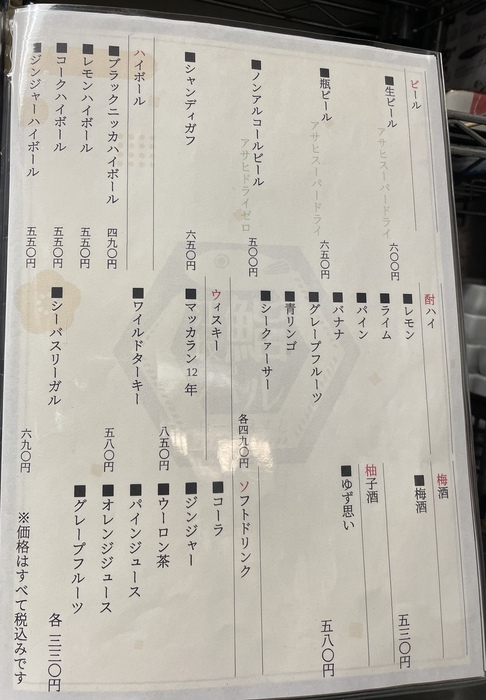 ビール
■生ビール
アサヒスーパードライ
六〇〇円
■瓶ビール
アサヒスーパードライ
六五〇円
■ノンアルコールビール
アサヒドライゼロ
五〇〇円
■シャンディガフ
六五〇円
ハイボール
■ブラックニッカハイボール
四九〇円
■レモンハイボール
五五〇円
■コークハイボール
五五〇円
■ジンジャーハイボール
五五〇円
酎ハイ
■レモン
■ライム
■パイン
■バナナ
■グレープフルーツ
■青リンゴ
■シークァーサー
各四九〇円
ウィスキー
■マッカラン12年
八五〇円
■ワイルドターキー
五八〇円
■シーバスリーガル
六九〇円
梅酒
■梅酒
五三〇円
柚子酒
■ゆず思い
五八〇円
ソフトドリンク
■コーラ
■ジンジャー
■ウーロン茶
■パインジュース
■オレンジジュース
■グレープフルーツ
各 三三〇円
※価格はすべて税込みです